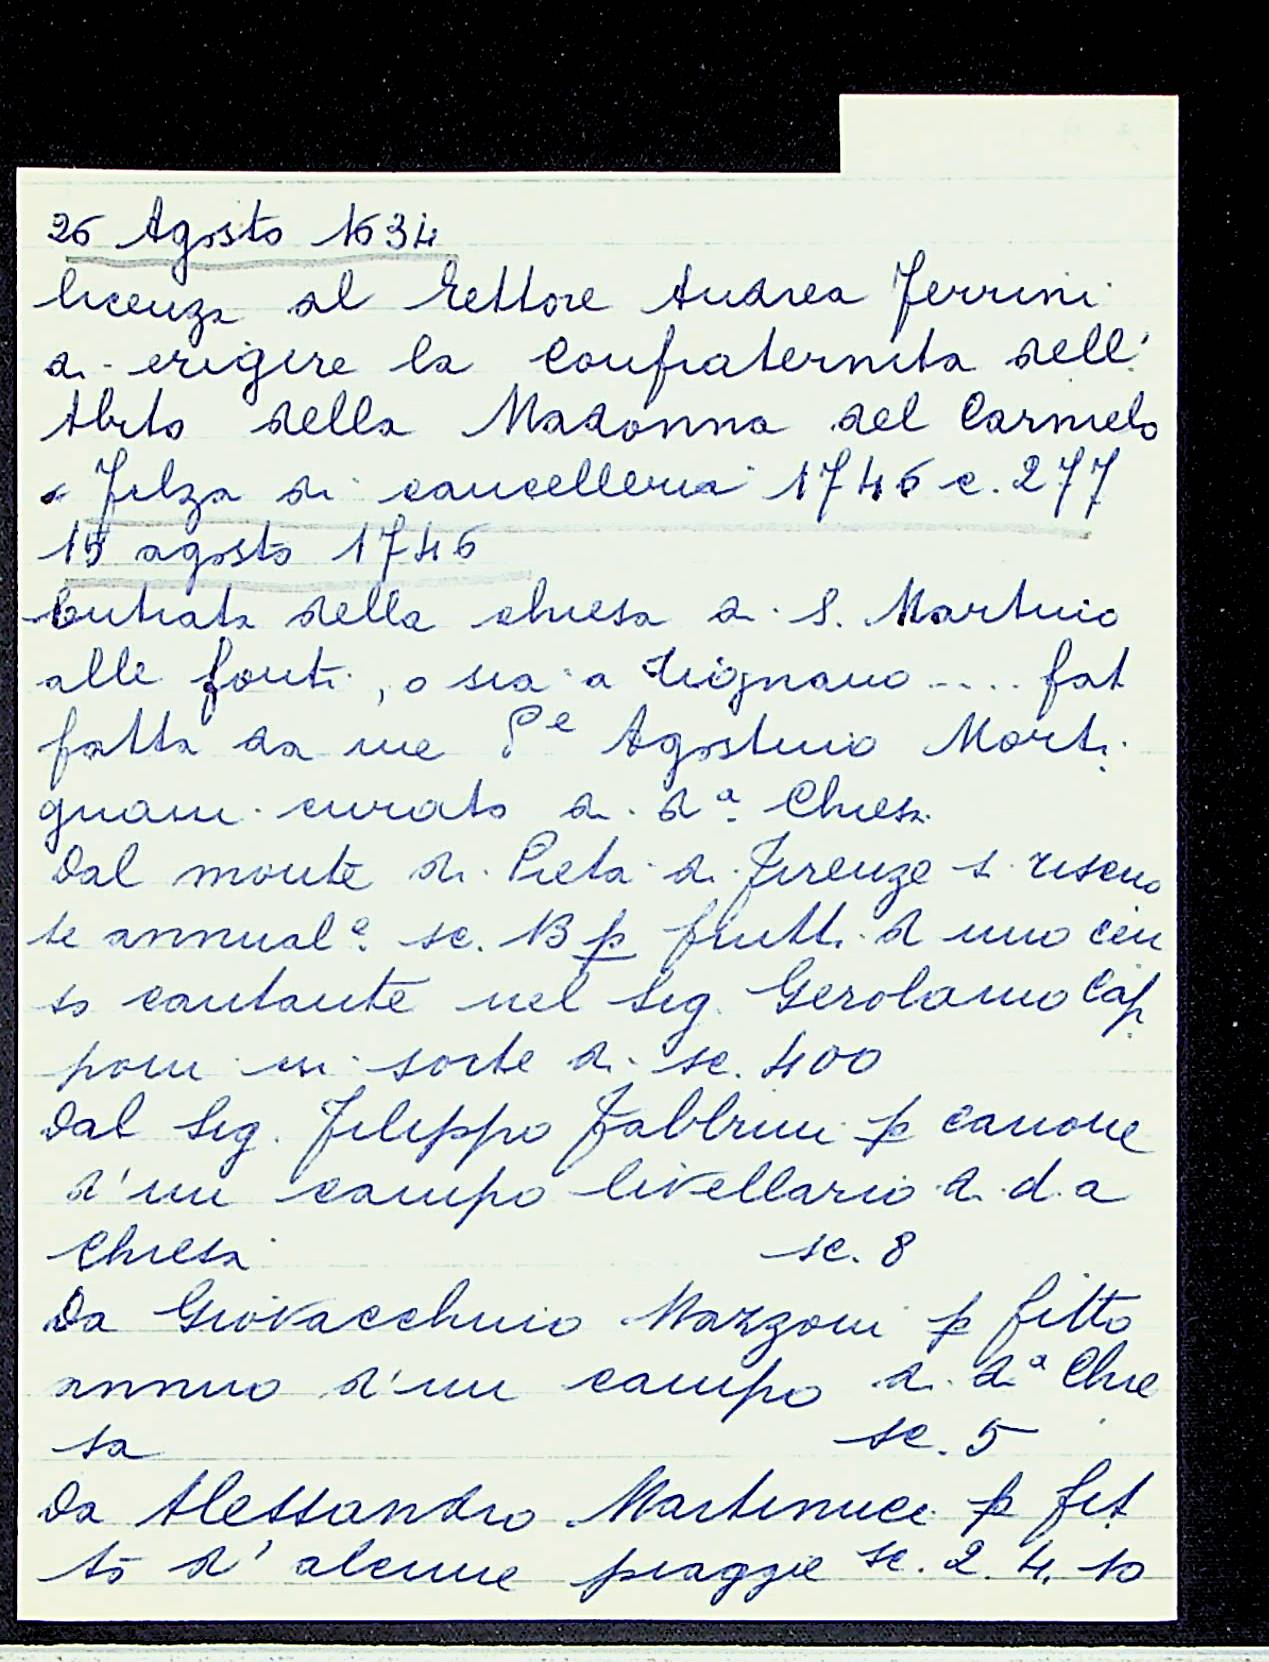 26 Agosto 1634
licenza al Rettore Andrea Ferrini
di erigere la Confraternita dell'
Abito della Madonna del Carmelo
Filza di cancelleria 1746 c. 277
15 agosto 1746
Entrata della chiesa di S. Martino
alle fonti, o sia a Zignano .... fat
fatta da me Pe Agostino Marti
gnani curato di da Chiesa
Dal monte di Pietà di Firenze si riscuo
te annuale sc. 13 p frutti d uno cen
so cantante nel Sig. Gerolamo Cap
poni in sorte di sc. 400
Dal Sig. Filippo Fabbrini p canone
d'un campo livellario di d.a
Chiesa sc. 8
Da Giovacchino Mazzoni p fitto
annuo d'un campo di da Chie
sa sc. 5
Da Alessandro Martinucci p fit
to d'alcune piagge sc. 2. 4. 10